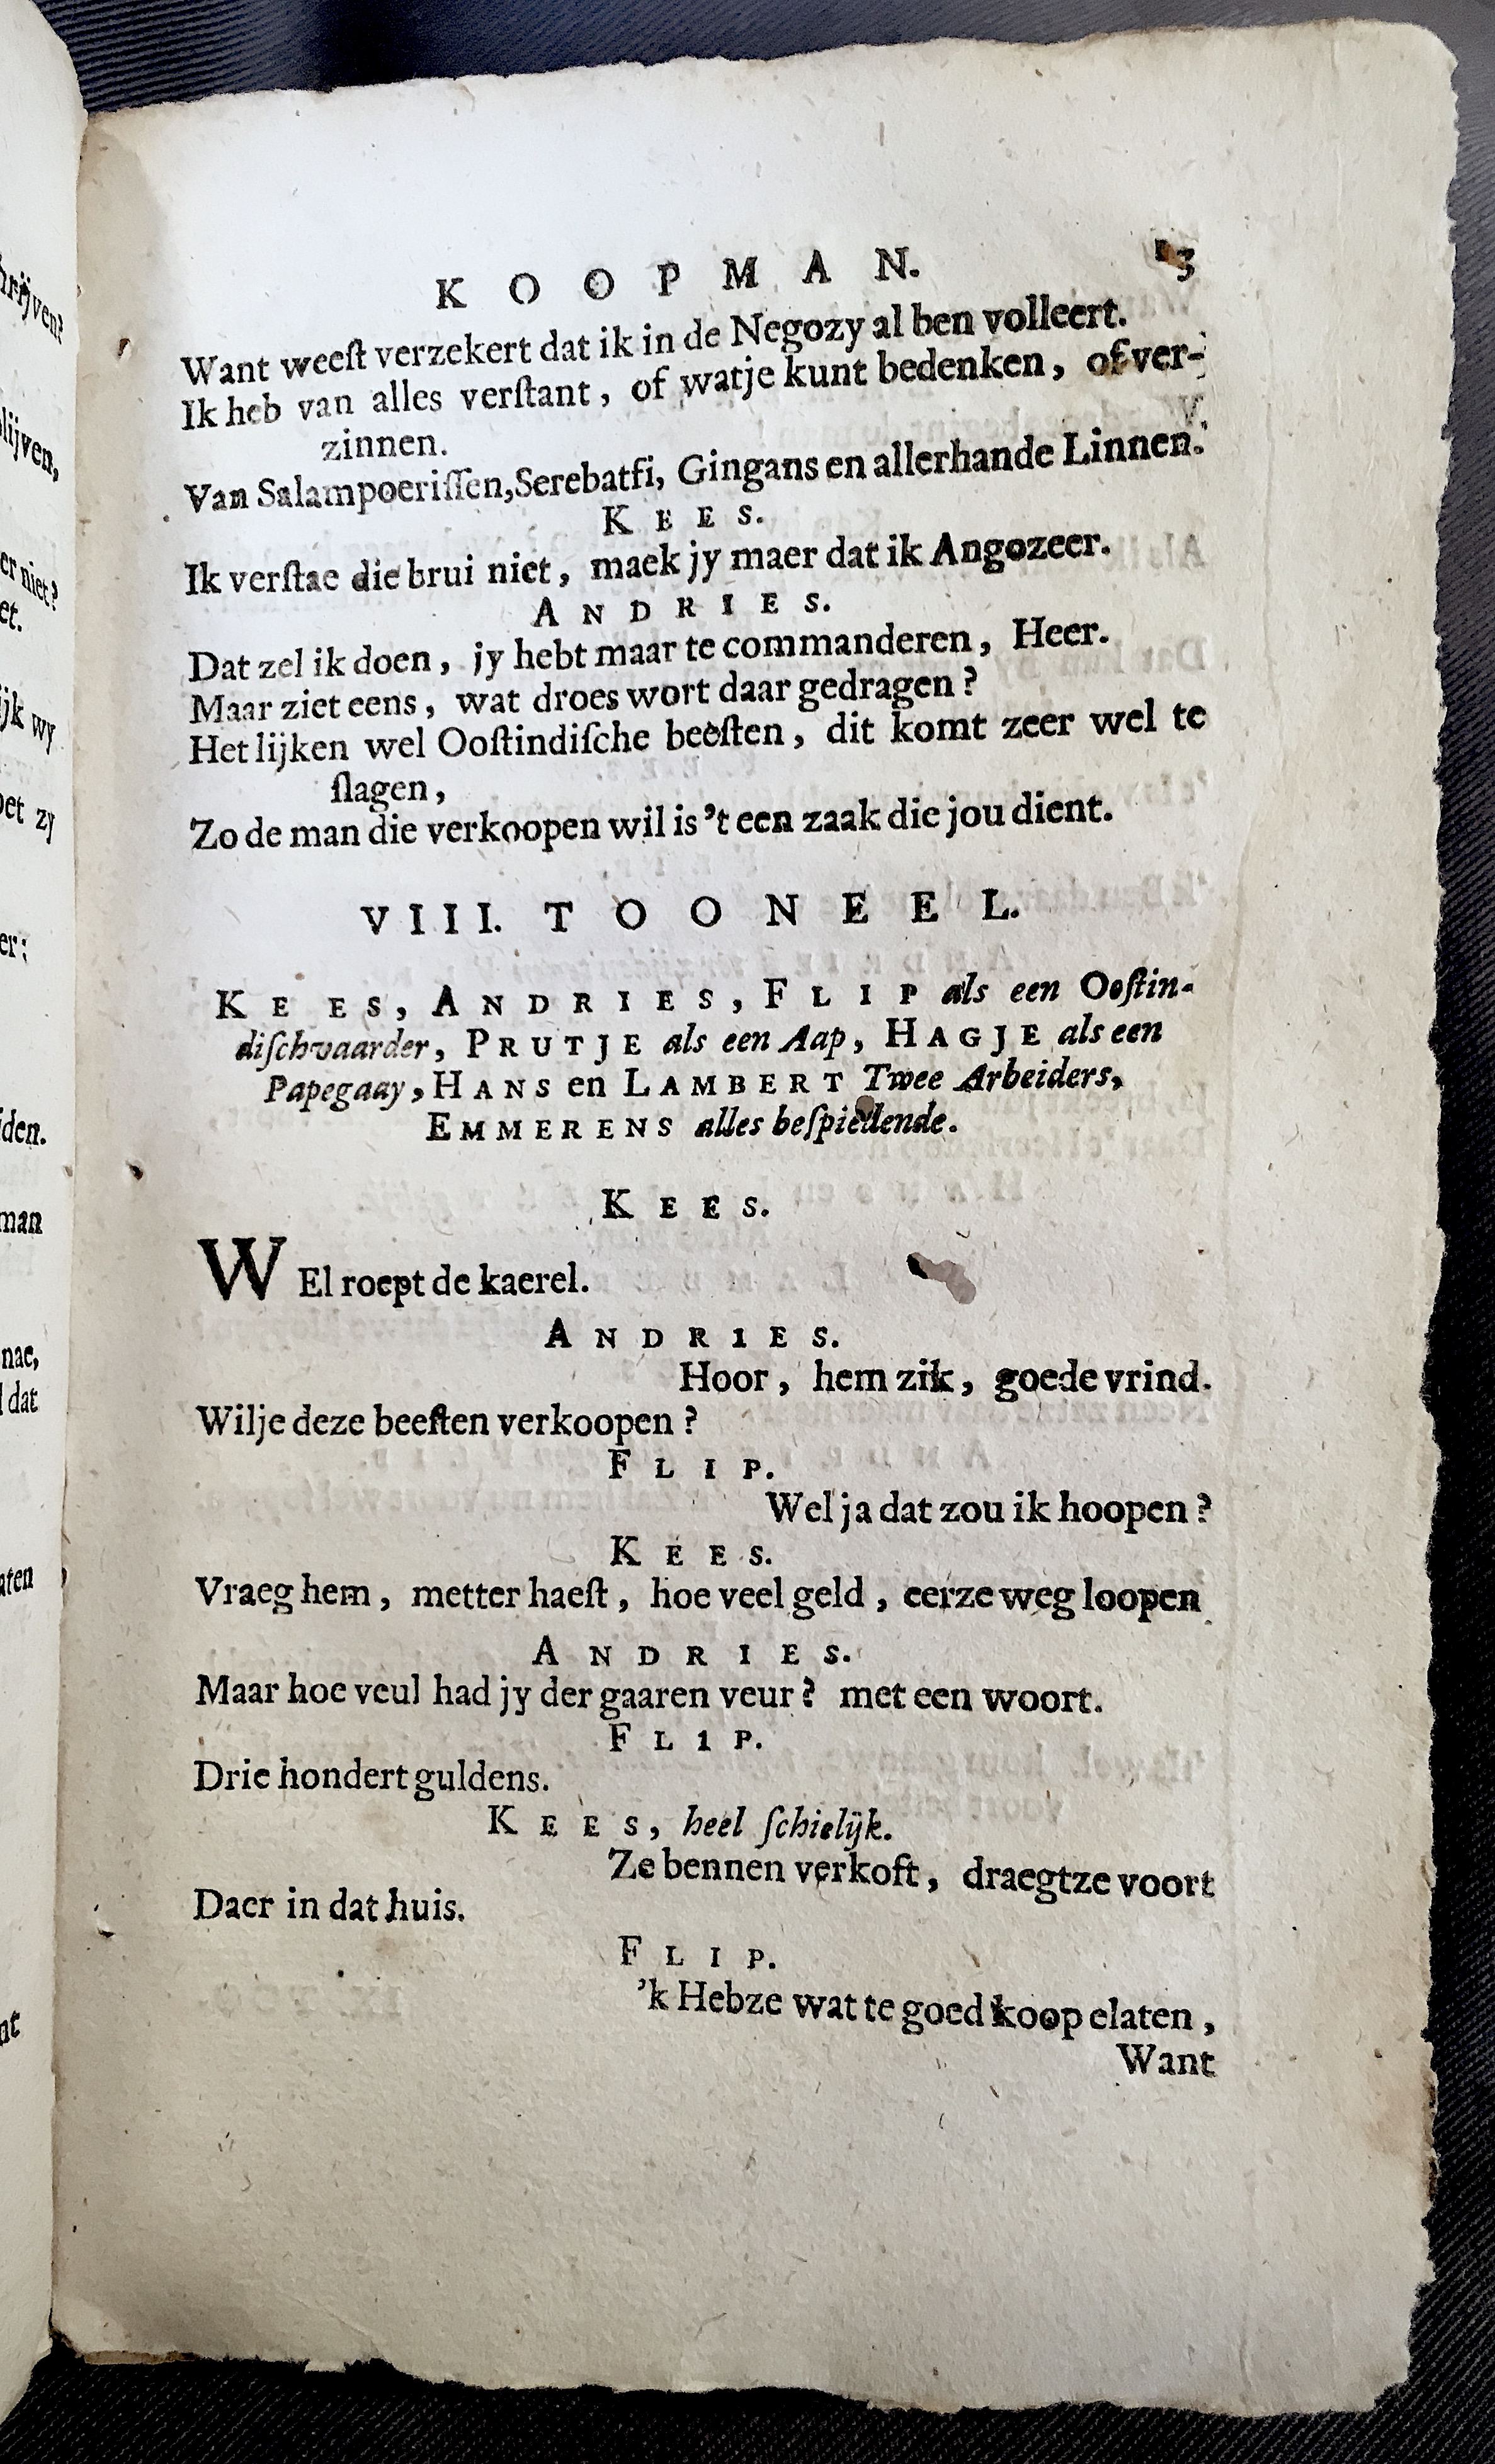 KOOPMAN. 13
Want weeſt verzekert dat ik in de Negozy al ben volleert.
Ik heb van alles verſtant, of watje kunt bedenken, of ver-
zinnen.
Van Salampoeriſſen, Serebatfi, Gingans en allerhande Linnen.
KEES.
Ik verſtae die brui niet, maek jy maer dat ik Angozeer.
ANDRIES.
Dat zel ik doen, jy hebt maar te commanderen, Heer.
Maar ziet eens, wat droes wort daar gedragen?
Het lijken wel Ooſtindiſche beeſten, dit komt zeer wel te
ſlagen,
Zo de man die verkoopen wil is 't een zaak die jou dient.
VIII. TOONEEL.
KEES, ANDRIES, FLIP als een Ooſtin-
diſchvaarder, PRUTJE als een Aap, HAGJE als een
Papegaay, HANS en LAMBERT Twee Arbeiders,
EMMERENS alles beſpiedende.
KEES.
WEl roept de kaerel.
ANDRIES.
Hoor, hem zik, goede vrind.
Wilje deze beeſten verkoopen?
FLIP.
Wel ja dat zou ik hoopen?
KEES.
Vraeg hem, metter haeſt, hoe veel geld, eerze weg loopen
ANDRIES.
Maar hoe veul had jy der gaaren veur? met een woort.
FLIP.
Drie hondert guldens.
KEES, heel ſchielijk.
Ze bennen verkoft, draegtze voort
Daer in dat huis.
FLIP.
'k Hebze wat te goed koop elaten,
Want